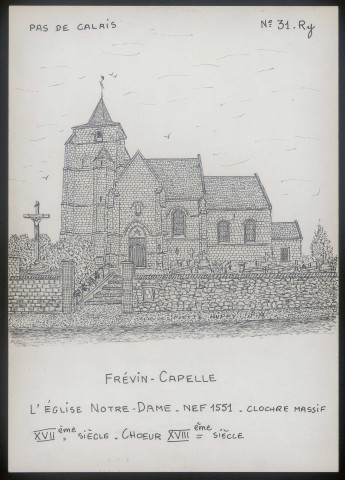 PAS DE CALAIS
Nº 31. Ry
FRÉVIN-CAPELLE
L'ÉGLISE NOTRE-DAME. NEF 1551. CLOCHE MASSIF
XVII ème SIÈCLE. CHOEUR XVIII ème SIÈCLE